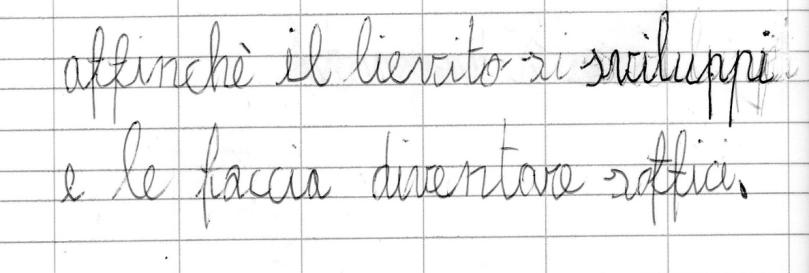 affinchè il lievito si sviluppi
e le faccia diventare soffici.